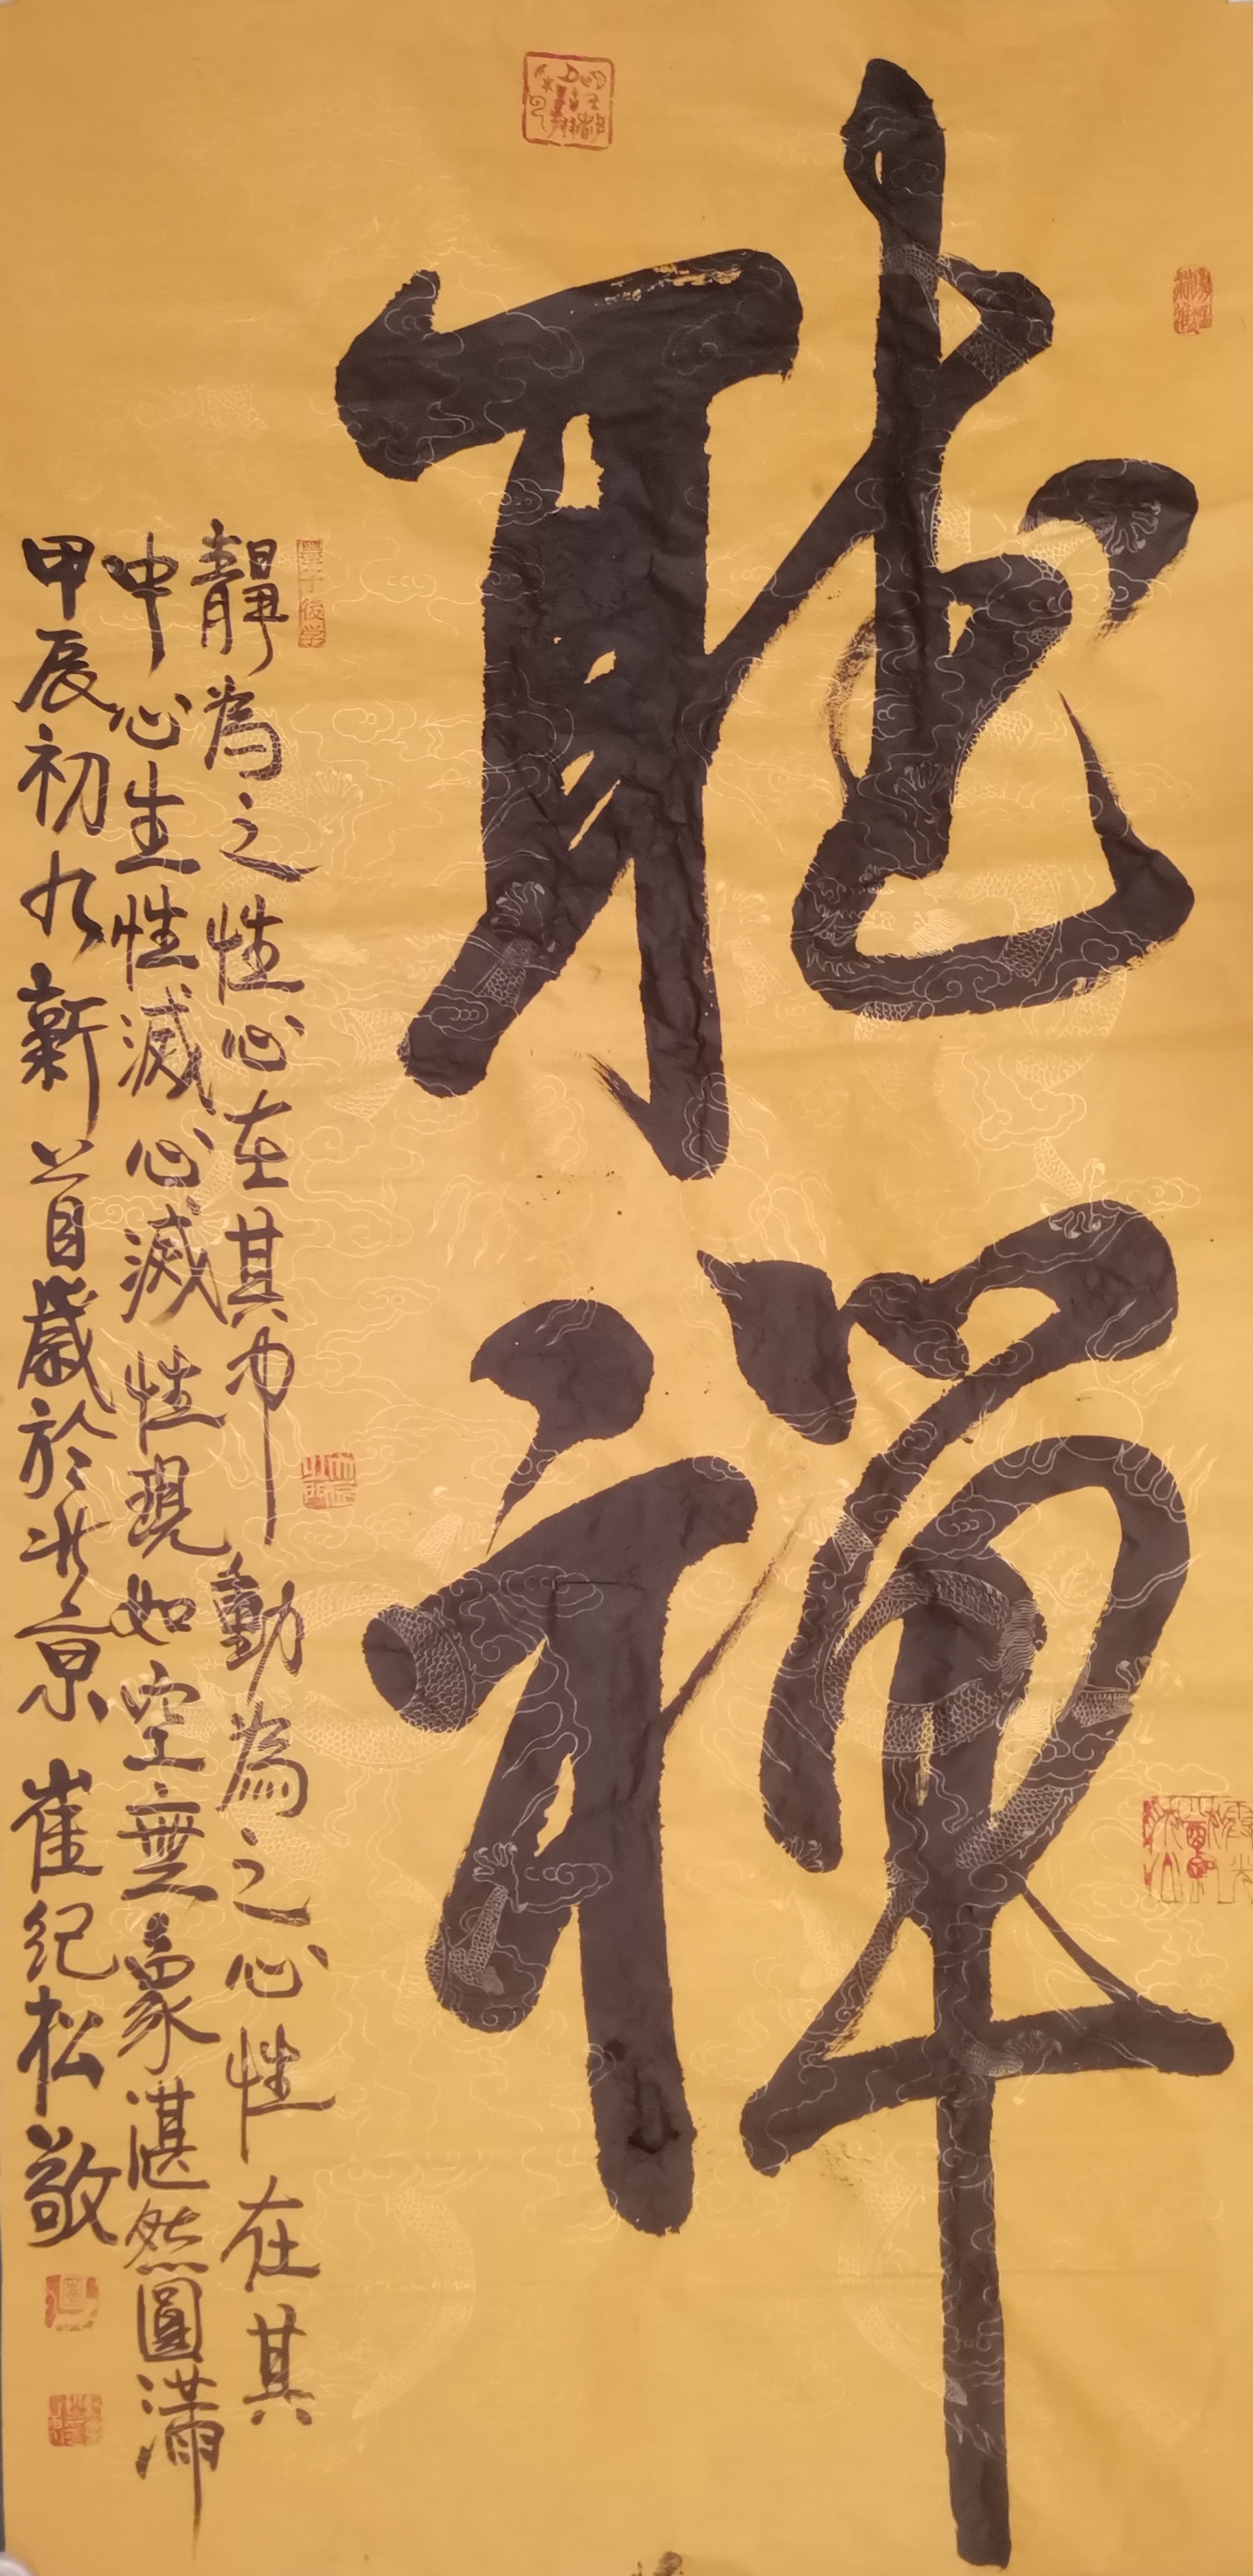 聽禪
靜為之性心在其中動為之心性在其
中心生性滅心滅性現如空無象湛然圓滿
甲辰初九新首歲於北京崔纪松敬
墨子後学